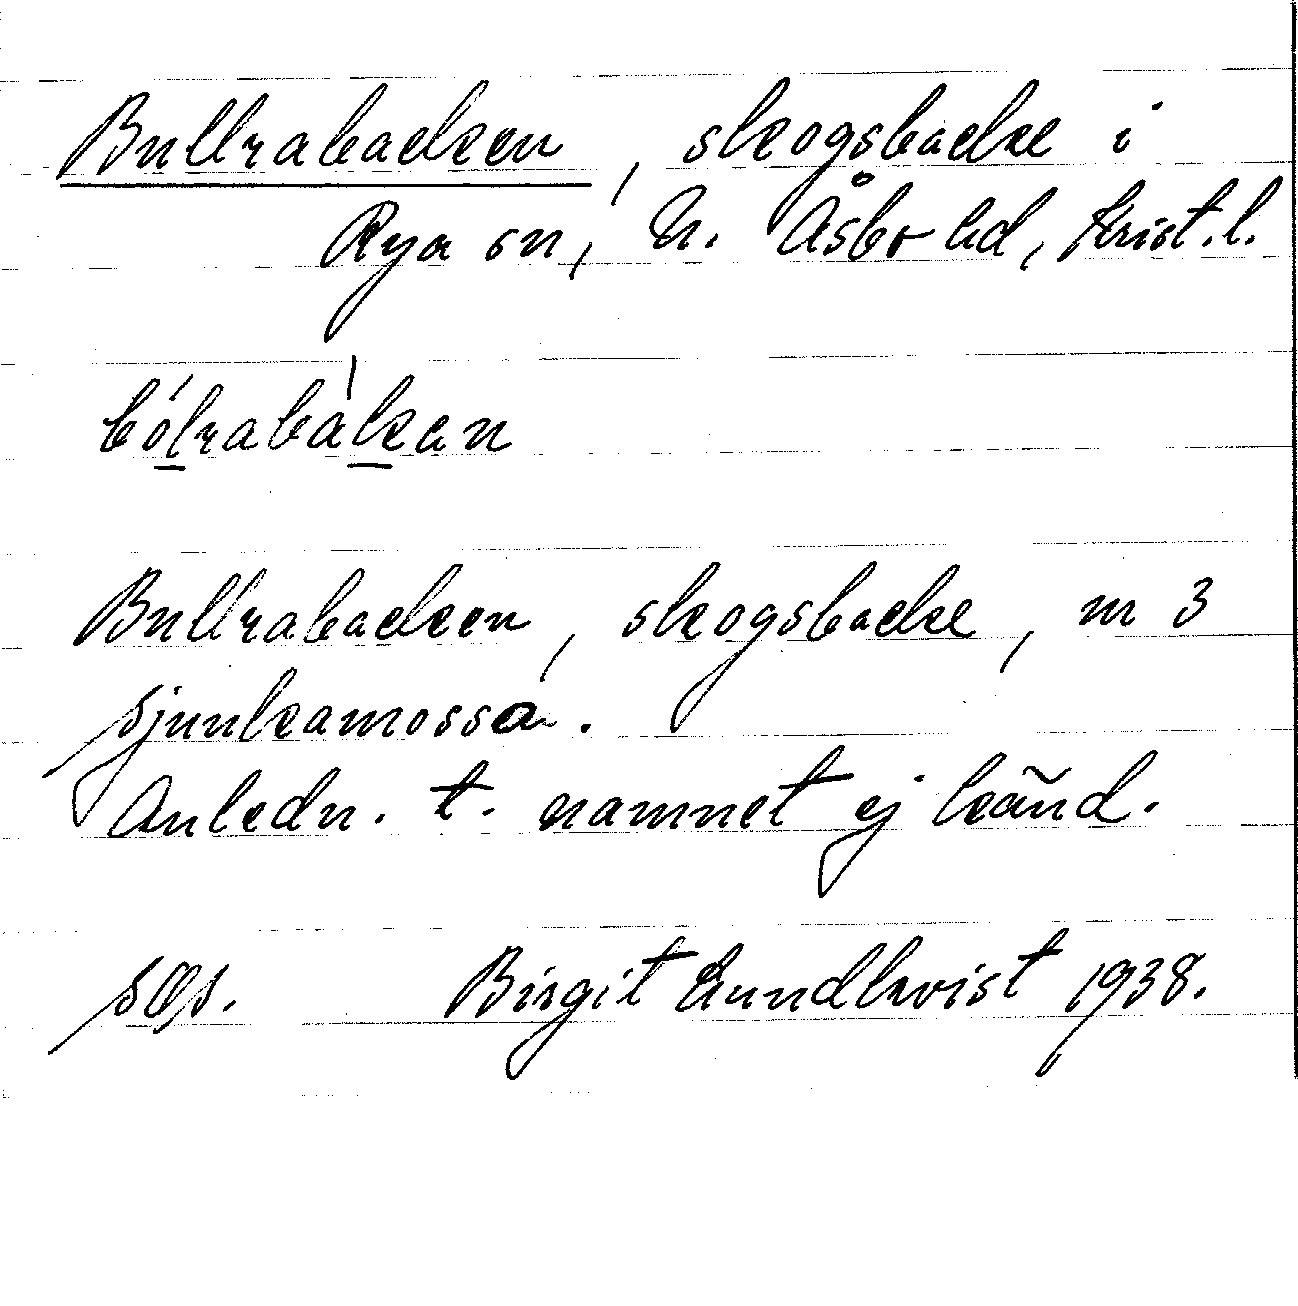 Bullrabacken, skogsbacke i
Rya sn, N. Åsbo hd, Krist. l.
bólrabàkan
Bullrabacken, skogsbacke, m 3
Sjunkamossa.
Anledn. t. namnet ej känd.
Birgit Lundkvist 1938.